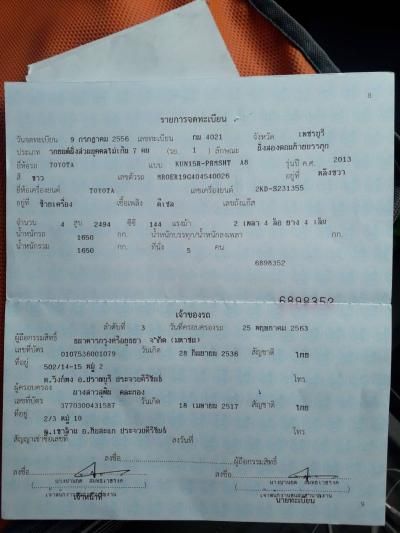 8
รายการจดทะเบียน
วันจดทะเบียน 9 กรกฎาคม 2556 เลขทะเบียน กม 4021 จังหวัด เพชรบุรี
ประเภท รถยนต์นั่งส่วนบุคคลไม่เกิน 7 คน (รย. 1 ) ลักษณะ นั่งสองตอนท้ายบรรทุก
ยี่ห้อรถ TOYOTA แบบ KUN15R-PRMSHT A8 รุ่นปี ค.ศ. 2013
สี ขาว เลขตัวรถ MR0ER19G404540026 อยู่ที่
ยี่ห้อเครื่องยนต์ TOYOTA เลขเครื่องยนต์ 2KD-S231355
อยู่ที่ ซ้ายเครื่อง เชื้อเพลิง ดีเซล เลขถังแก๊ส
จำนวน 4 สูบ 2494 ซีซี 144 แรงม้า 2 เพลา 4 ล้อ ยาง 4 เส้น
น้ำหนักรถ 1650 กก. น้ำหนักบรรทุก/น้ำหนักลงเพลา กก.
น้ำหนักรวม 1650 กก. ที่นั่ง 5 คน
6898352
6898352
เจ้าของรถ
ลำดับที่ 3 วันที่ครอบครองรถ 25 พฤษภาคม 2563
ผู้ถือกรรมสิทธิ์ ธนาคารกรุงศรีอยุธยา จำกัด (มหาชน)
เลขที่บัตร 0107536001079 วันเกิด 28 กันยายน 2536 สัญชาติ ไทย
ที่อยู่ 502/14-15 หมู่ 2
ต.วังก์พง อ.ปราณบุรี ประจวบคีรีขันธ์ โทร
ผู้ครอบครอง นางสาว
เลขที่บัตร 3770300431587 วันเกิด 18 เมษายน 2517 สัญชาติ ไทย
ที่อยู่ 2/3 หมู่ 10
ประจวบคีรีขันธ์ โทร.
สัญญาเช่าซื้อเลขที่ ลงวันที่
ลงชื่อ ผู้ถือกรรมสิทธิ์
ลงชื่อ ลงชื่อ
เจ้าหน้าที่ นายทะเบียน
9